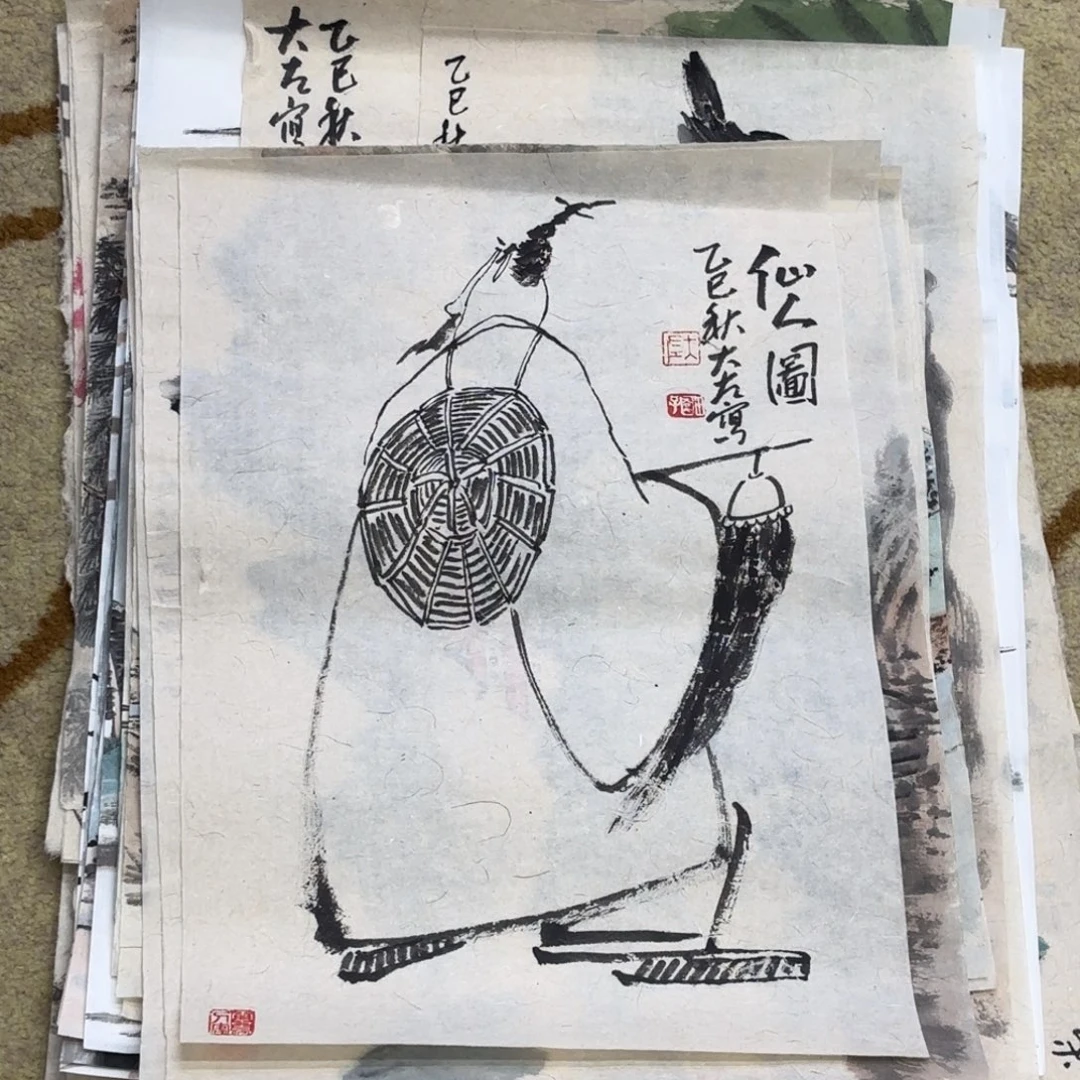 仙人圖
乙巳秋大左寫
乙巳秋
大左寫
乙巳